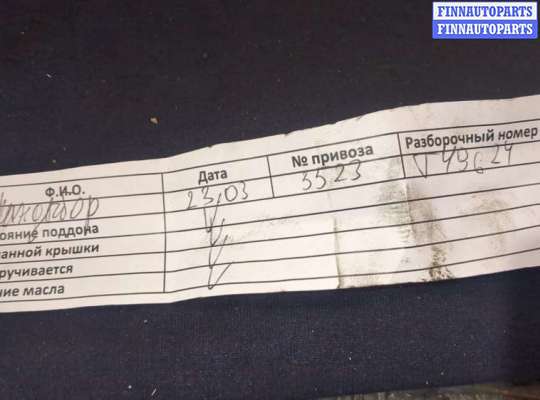 FINNAUTOPARTS
FINNAUTOPARTS
Ф.И.О. Дата № привоза Разборочный номер
23,03 3523 V49624
ояние поддона
анной крышки
ручивается
ние масла